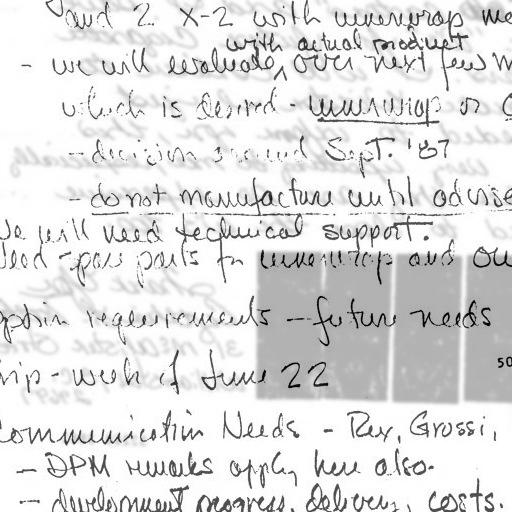 and 2 X-2 with innerwrap
with actual product
- we will evaluate, over next few
which is desired - innerwrap or
- decision around Sept. '87
- do not manufacture until advise
We will need technical support.
Need spare parts for innerwrap and ou
requirements - future needs
50
trip - week of June 22
Communication Needs - Rex, Grossi,
- DPM remarks apply here also.
- development progress, delivery, costs.